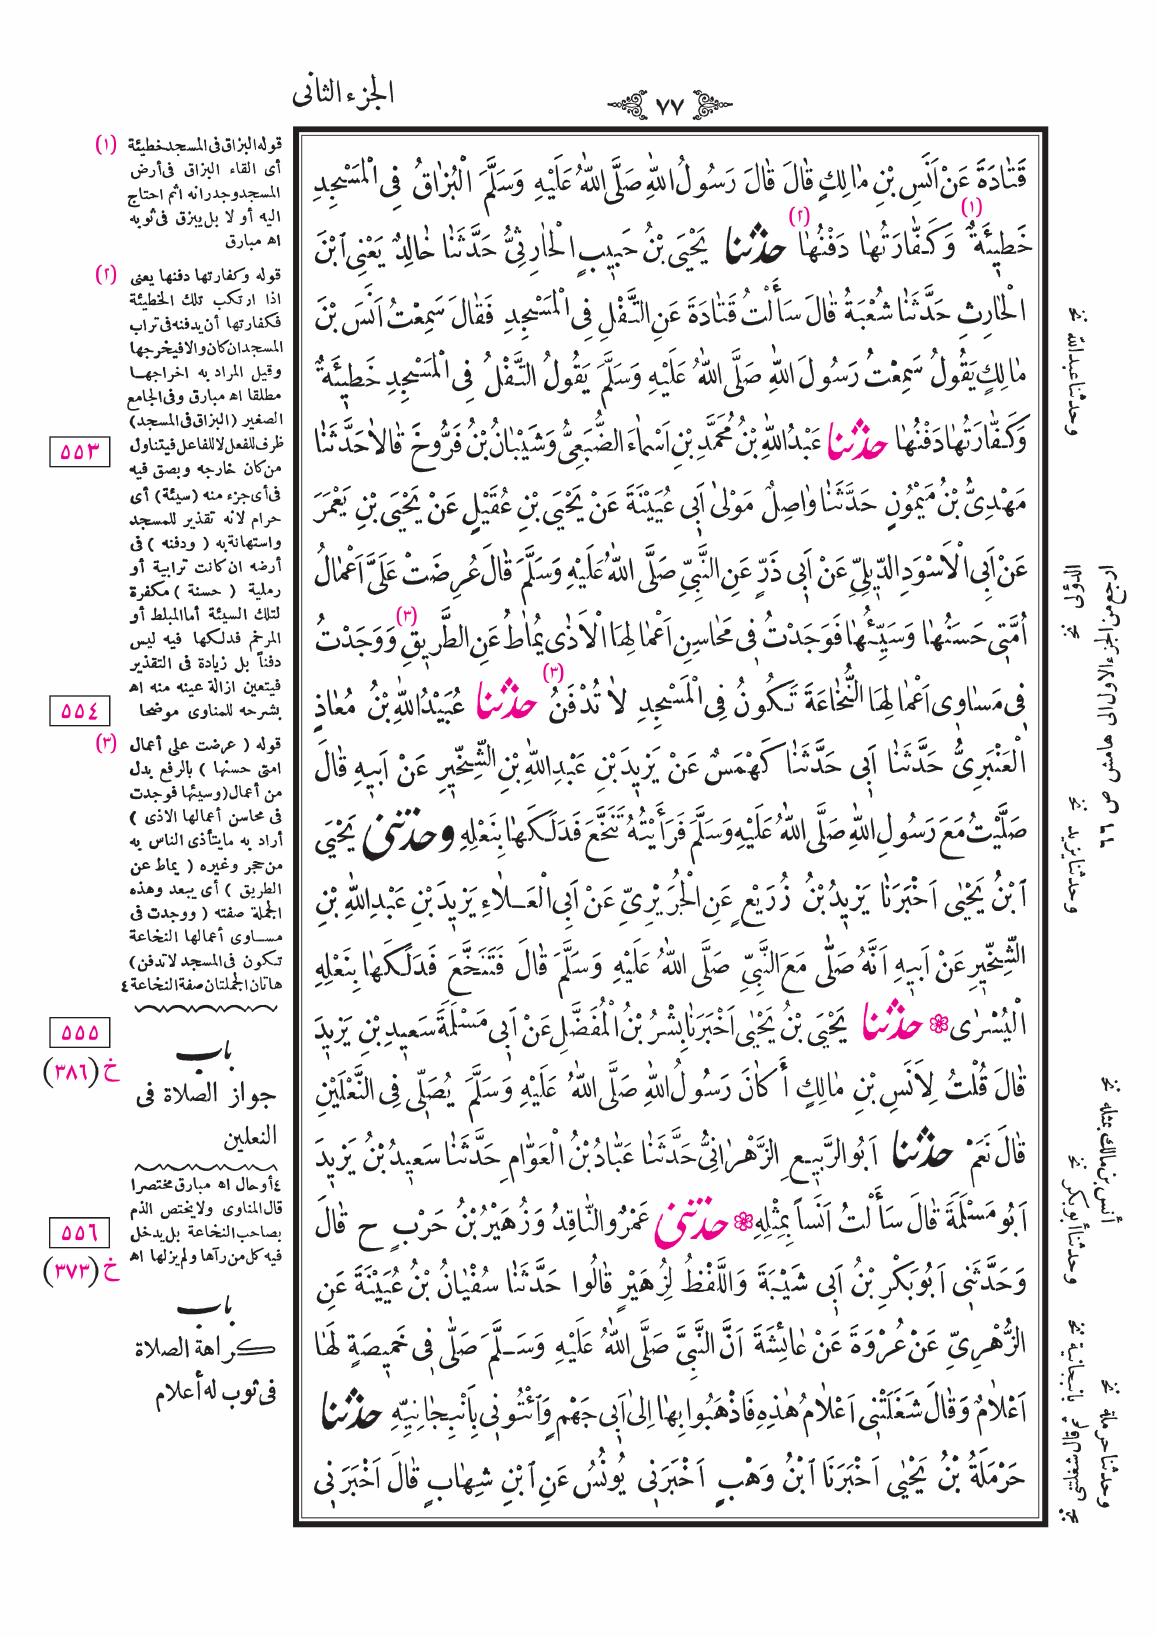 الجزء الثانى
٧٧
قَتَادَةَ عَنْ اَنَسِ بْنِ مَالِكٍ قَالَ قَالَ رَسُولُ اللّٰهِ صَلَّى اللّٰهُ عَلَيْهِ وَسَلَّمَ الْبُزَاقُ فِى الْمَسْجِدِ
خَطِيئَةٌ (١) وَكَفَّارَتُهَا دَفْنُهَا (٢) حدثنا يَحْيَى بْنُ حَبِيبٍ الْحَارِثِىُّ حَدَّثَنَا خَالِدٌ يَعْنِى ابْنَ
الْحَارِثِ حَدَّثَنَا شُعْبَةُ قَالَ سَأَلْتُ قَتَادَةَ عَنِ التَّفْلِ فِى الْمَسْجِدِ فَقَالَ سَمِعْتُ اَنَسَ بْنَ
مَالِكٍ يَقُولُ سَمِعْتُ رَسُولَ اللّٰهِ صَلَّى اللّٰهُ عَلَيْهِ وَسَلَّمَ يَقُولُ التَّفْلُ فِى الْمَسْجِدِ خَطِيئَةٌ
وَكَفَّارَتُهَا دَفْنُهَا حدثنا عَبْدُ اللّٰهِ بْنُ مُحَمَّدِ بْنِ اَسْمَاءَ الضُّبَعِىُّ وَشَيْبَانُ بْنُ فَرُّوخَ قَالَا حَدَّثَنَا
مَهْدِىُّ بْنُ مَيْمُونٍ حَدَّثَنَا وَاصِلٌ مَوْلىٰ اَبِى عُيَيْنَةَ عَنْ يَحْيَى بْنِ عُقَيْلٍ عَنْ يَحْيَى بْنِ يَعْمَرَ
عَنْ اَبِى الْاَسْوَدِ الدِّيلِىِّ عَنْ اَبِى ذَرٍّ عَنِ النَّبِىِّ صَلَّى اللّٰهُ عَلَيْهِ وَسَلَّمَ قَالَ عُرِضَتْ عَلَىَّ اَعْمَالُ
اُمَّتِى حَسَنُهَا وَسَيِّئُهَا فَوَجَدْتُ فِى مَحَاسِنِ اَعْمَالِهَا الْاَذٰى يُمَاطُ عَنِ الطَّرِيقِ (٣) وَوَجَدْتُ
فِى مَسَاوِى اَعْمَالِهَا النُّخَاعَةَ تَكُونُ فِى الْمَسْجِدِ لَا تُدْفَنُ (٣) حدثنا عُبَيْدُ اللّٰهِ بْنُ مُعَاذٍ
الْعَنْبَرِىُّ حَدَّثَنَا اَبِى حَدَّثَنَا كَهْمَسٌ عَنْ يَزِيدَ بْنِ عَبْدِ اللّٰهِ بْنِ الشِّخِّيرِ عَنْ اَبِيهِ قَالَ
صَلَّيْتُ مَعَ رَسُولِ اللّٰهِ صَلَّى اللّٰهُ عَلَيْهِ وَسَلَّمَ فَرَأَيْتُهُ تَنَخَّعَ فَدَلَكَهَا بِنَعْلِهِ وحدثنى يَحْيَى
ابْنُ يَحْيٰى اَخْبَرَنَا يَزِيدُ بْنُ زُرَيْعٍ عَنِ الْجُرَيْرِىِّ عَنْ اَبِى الْعَلَاءِ يَزِيدَ بْنِ عَبْدِ اللّٰهِ بْنِ
الشِّخِّيرِ عَنْ اَبِيهِ اَنَّهُ صَلّٰى مَعَ النَّبِىِّ صَلَّى اللّٰهُ عَلَيْهِ وَسَلَّمَ قَالَ فَتَنَخَّعَ فَدَلَكَهَا بِنَعْلِهِ
الْيُسْرٰى حدثنا يَحْيَى بْنُ يَحْيٰى اَخْبَرَنَا بِشْرُ بْنُ الْمُفَضَّلِ عَنْ اَبِى مَسْلَمَةَ سَعِيدِ بْنِ يَزِيدَ
قَالَ قُلْتُ لِاَنَسِ بْنِ مَالِكٍ أَكَانَ رَسُولُ اللّٰهِ صَلَّى اللّٰهُ عَلَيْهِ وَسَلَّمَ يُصَلِّى فِى النَّعْلَيْنِ
قَالَ نَعَمْ حدثنا اَبُو الرَّبِيعِ الزَّهْرَانِىُّ حَدَّثَنَا عَبَّادُ بْنُ الْعَوَّامِ حَدَّثَنَا سَعِيدُ بْنُ يَزِيدَ
اَبُو مَسْلَمَةَ قَالَ سَأَلْتُ اَنَساً بِمِثْلِهِ حدثنى عَمْرٌو النَّاقِدُ وَزُهَيْرُ بْنُ حَرْبٍ ح قَالَ
وَحَدَّثَنِى اَبُو بَكْرِ بْنُ اَبِى شَيْبَةَ وَاللَّفْظُ لِزُهَيْرٍ قَالُوا حَدَّثَنَا سُفْيَانُ بْنُ عُيَيْنَةَ عَنِ
الزُّهْرِىِّ عَنْ عُرْوَةَ عَنْ عَائِشَةَ اَنَّ النَّبِىَّ صَلَّى اللّٰهُ عَلَيْهِ وَسَلَّمَ صَلّٰى فِى خَمِيصَةٍ لَهَا
اَعْلَامٌ وَقَالَ شَغَلَتْنِى اَعْلَامُ هٰذِهِ فَاذْهَبُوا بِهَا اِلىٰ اَبِى جَهْمٍ وَائْتُونِى بِاَنْبِجَانِيِّهِ حدثنا
حَرْمَلَةُ بْنُ يَحْيٰى اَخْبَرَنَا ابْنُ وَهْبٍ اَخْبَرَنِى يُونُسُ عَنِ ابْنِ شِهَابٍ قَالَ اَخْبَرَنِى
(١) قوله البزاق فى المسجد خطيئة
أى القاء البزاق فى أرض
المسجد وجدرانه اثم احتاج
اليه أو لا بل يبزق فى ثوبه
اه مبارق
(٢) قوله وكفارتها دفنها يعنى
اذا ارتكب تلك الخطيئة
فكفارتها أن يدفنه فى تراب
المسجد ان كان والا فيخرجها
وقيل المراد به اخراجها
مطلقا اه مبارق وفى الجامع
الصغير (البزاق فى المسجد)
ظرف للفعل لا للفاعل فيتناول
من كان خارجه وبصق فيه
فى أى جزء منه (سيئة) أى
حرام لانه تقذير للمسجد
واستهانة به ( ودفنه ) فى
أرضه ان كانت ترابية أو
رملية ( حسنة ) مكفرة
لتلك السيئة أما المبلط أو
المرخم فدلكها فيه ليس
دفناً بل زيادة فى التقذير
فيتعين ازالة عينه منه اه
بشرحه للمناوى موضحا
(٣) قوله ( عرضت على أعمال
امتى حسنها ) بالرفع بدل
من أعمال (وسيئها فوجدت
فى محاسن أعمالها الاذى )
أراد به مايتأذى الناس به
من حجر وغيره ( يماط عن
الطريق ) أى يبعد وهذه
الجملة صفته ( ووجدت فى
مساوى أعمالها النخاعة
تكون فى المسجد لا تدفن)
هاتان الجملتان صفة النخاعة ٤
باب
جواز الصلاة فى
النعلين
٤ أو حال اه مبارق مختصرا
قال المناوى ولا يختص الذم
بصاحب النخاعة بل يدخل
فيه كل من رآها ولم يزلها اه
باب
كراهة الصلاة
فى ثوب له أعلام
٥٥٣
٥٥٤
٥٥٥
خ (٣٨٦)
٥٥٦
خ (٣٧٣)
وحدثنا عبدالله نخ
الدؤلى نخ
ارجع من الجزء الاول الى هامش ص ٦٦
وحدثنا يزيد نخ
أنس بن مالك بمثله نخ
وحدثنا أبوبكر نخ
بانبجانية نخ
وحدثنا حرملة نخ